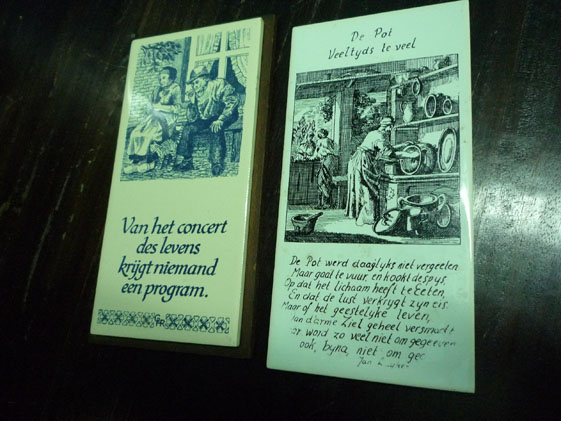 Van het concert
des levens
krijgt niemand
een program.
De Pot
Veeltyds te veel
De Pot werd daaglyks niet vergeeten
Maar gaat te vuur, en kookt de spys,
Op dat het lichaam heeft te eeten,
En dat de lust verkrygt zyn eis.
Maar of het geestelyke leven,
Van d'arme Ziel geheel versmacht
word zo veel niet om gegeeven
ook, byna, niet om
Jan